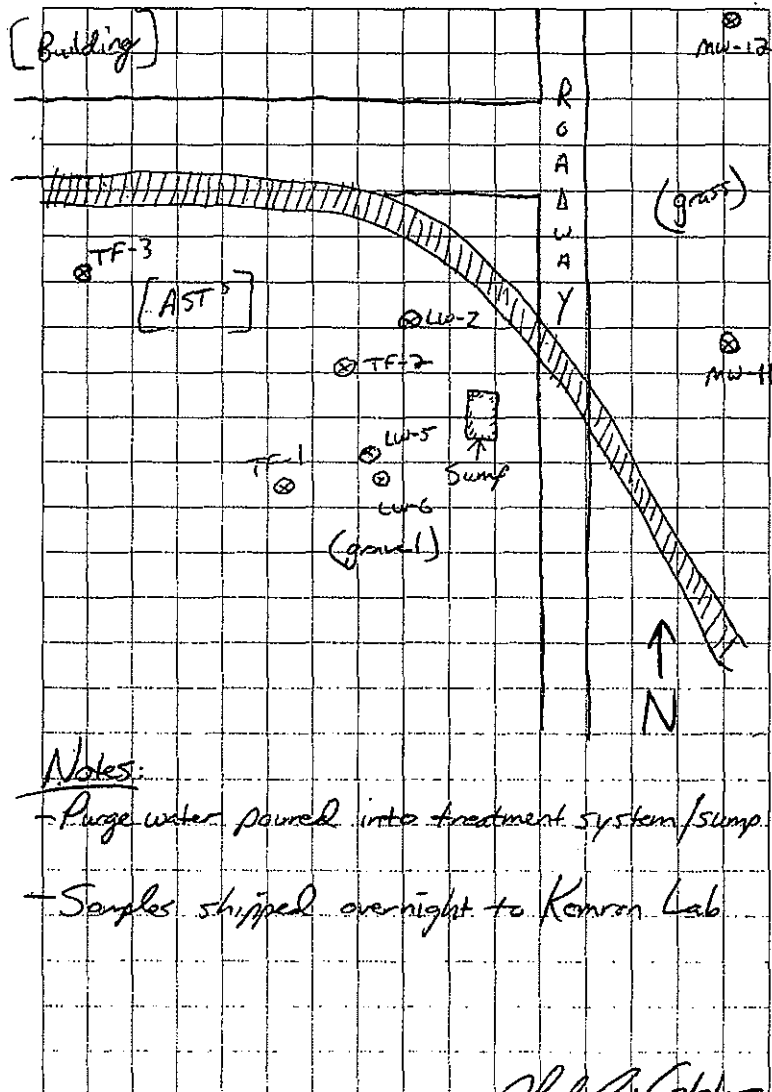 [Building]
MW-12
ROADWAY
(grass)
TF-3
[AST's]
LW-2
TF-2
MW-11
LW-5
TF-1
Sump
LW-6
(gravel)
N
Notes:
- Purge water poured into treatment system/sump
- Samples shipped overnight to Kemron Lab